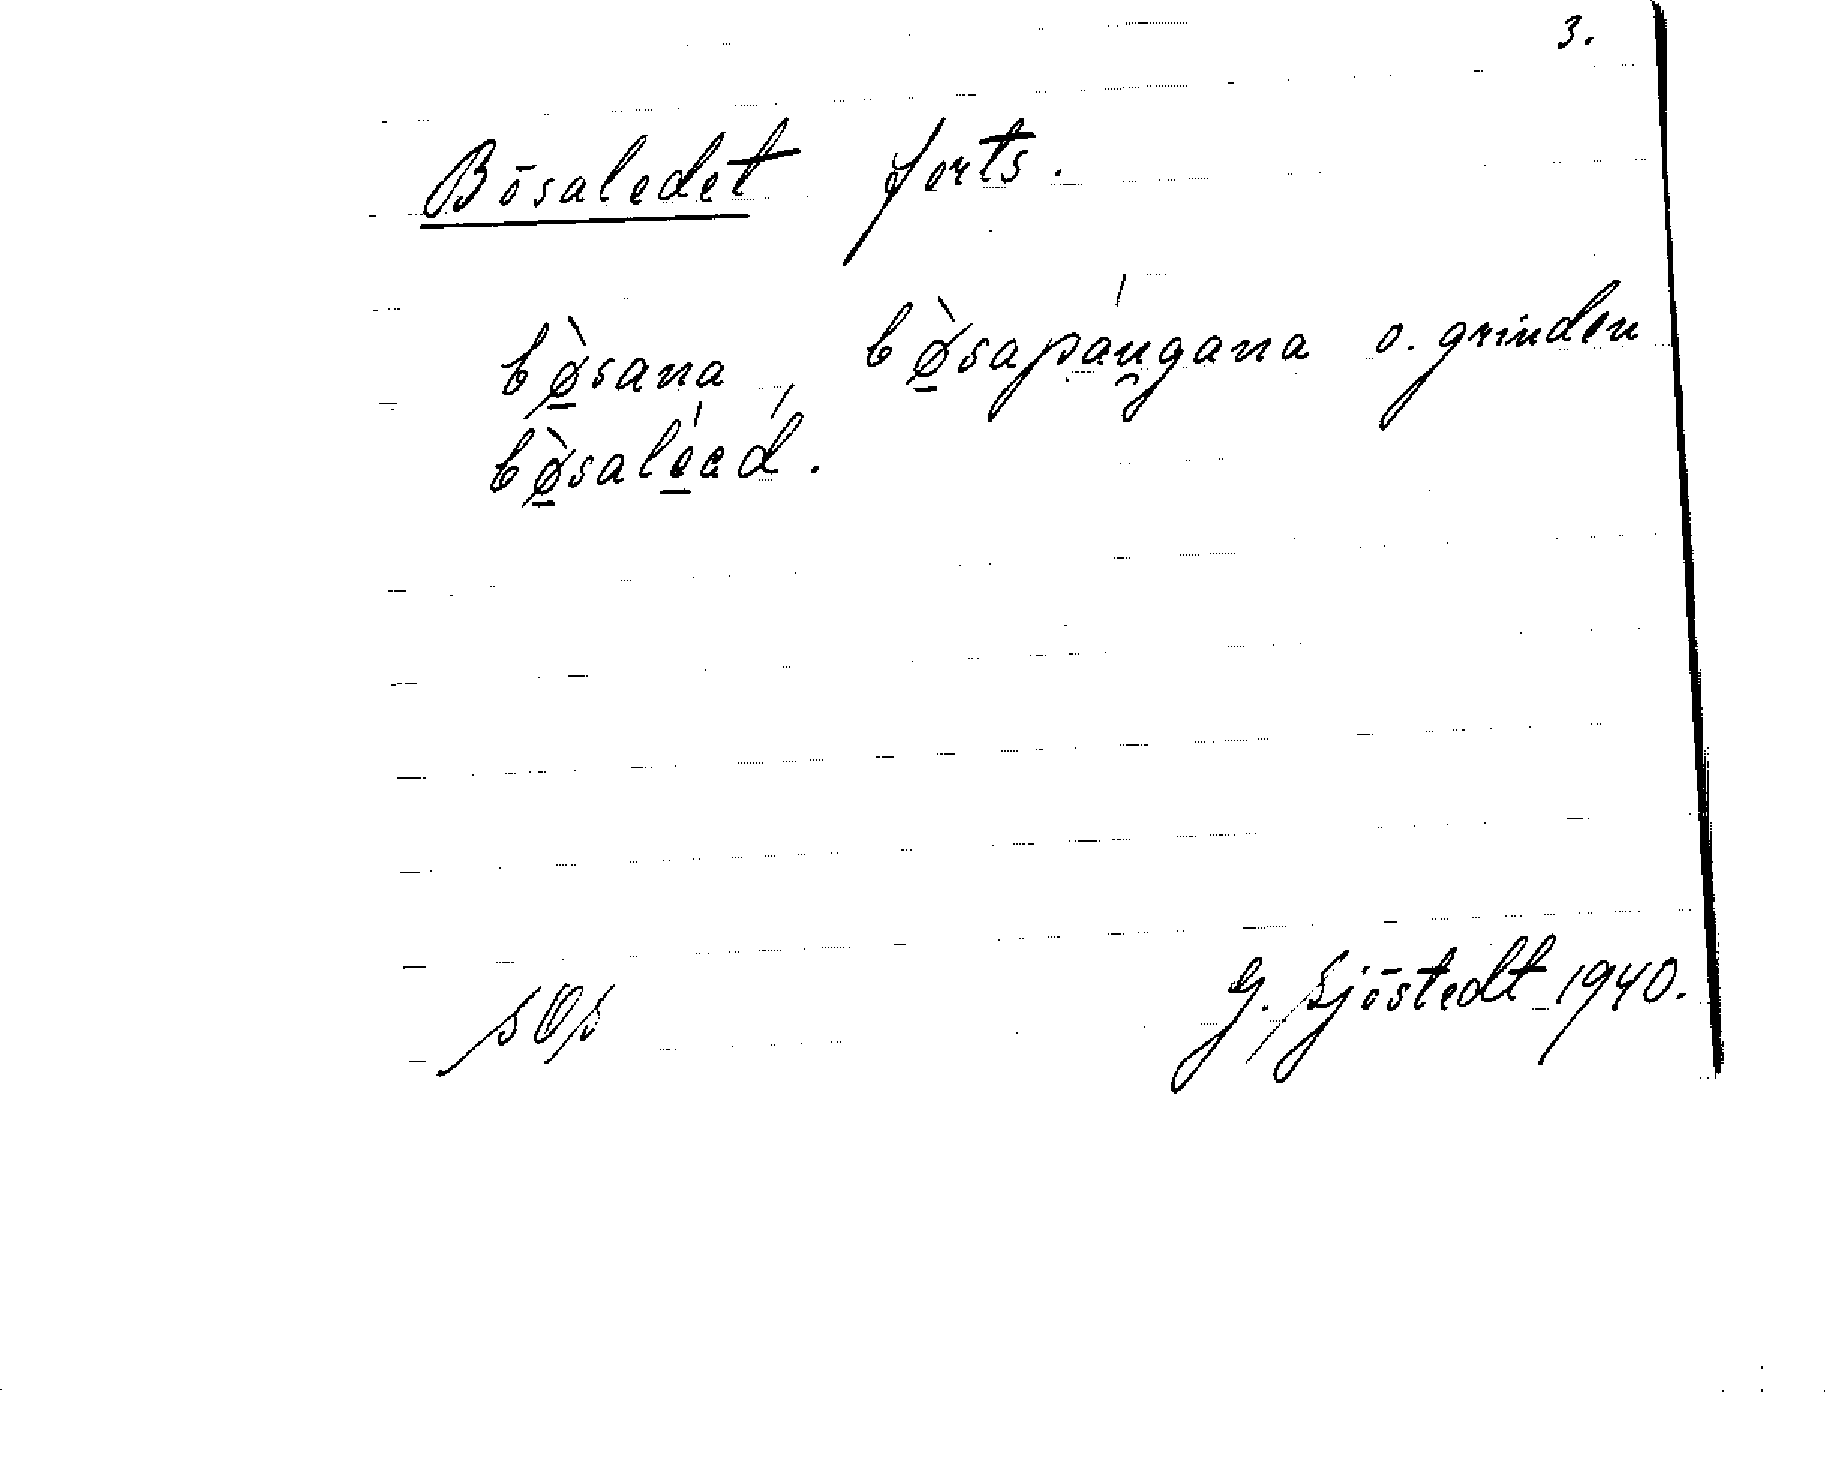 3.
Bösaledet forts.
bø̱̀sana, bø̱̀sapáŋgana o. grinden
bø̱̀salé̱ad.
G. Sjöstedt 1940.